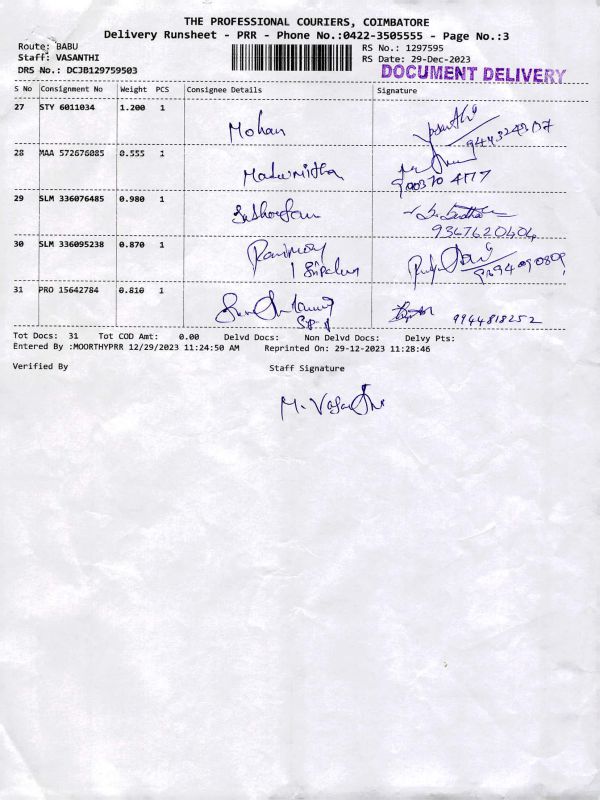 THE PROFESSIONAL COURIERS, COIMBATORE
Delivery Runsheet - PRR - Phone No.:0422-3505555 - Page No.:3
Route: BABU RS No.: 1297595
Staff: VASANTHI RS Date: 29-Dec-2023
DRS No.: DCJB129759503 DOCUMENT DELIVERY
S No Consignment No Weight PCS Consignee Details Signature
27 STY 6011034 1.200 1 Mohan
28 MAA 572676085 0.555 1
29 SLM 336076485 0.980 1
9367620404
30 SLM 336095238 0.870 1
31 PRO 15642784 0.810 1 9944818252
Tot Docs: 31 Tot COD Amt: 0.00 Delvd Docs: Non Delvd Docs: Delvy Pts:
Entered By :MOORTHYPRR 12/29/2023 11:24:50 AM Reprinted On: 29-12-2023 11:28:46
Verified By Staff Signature